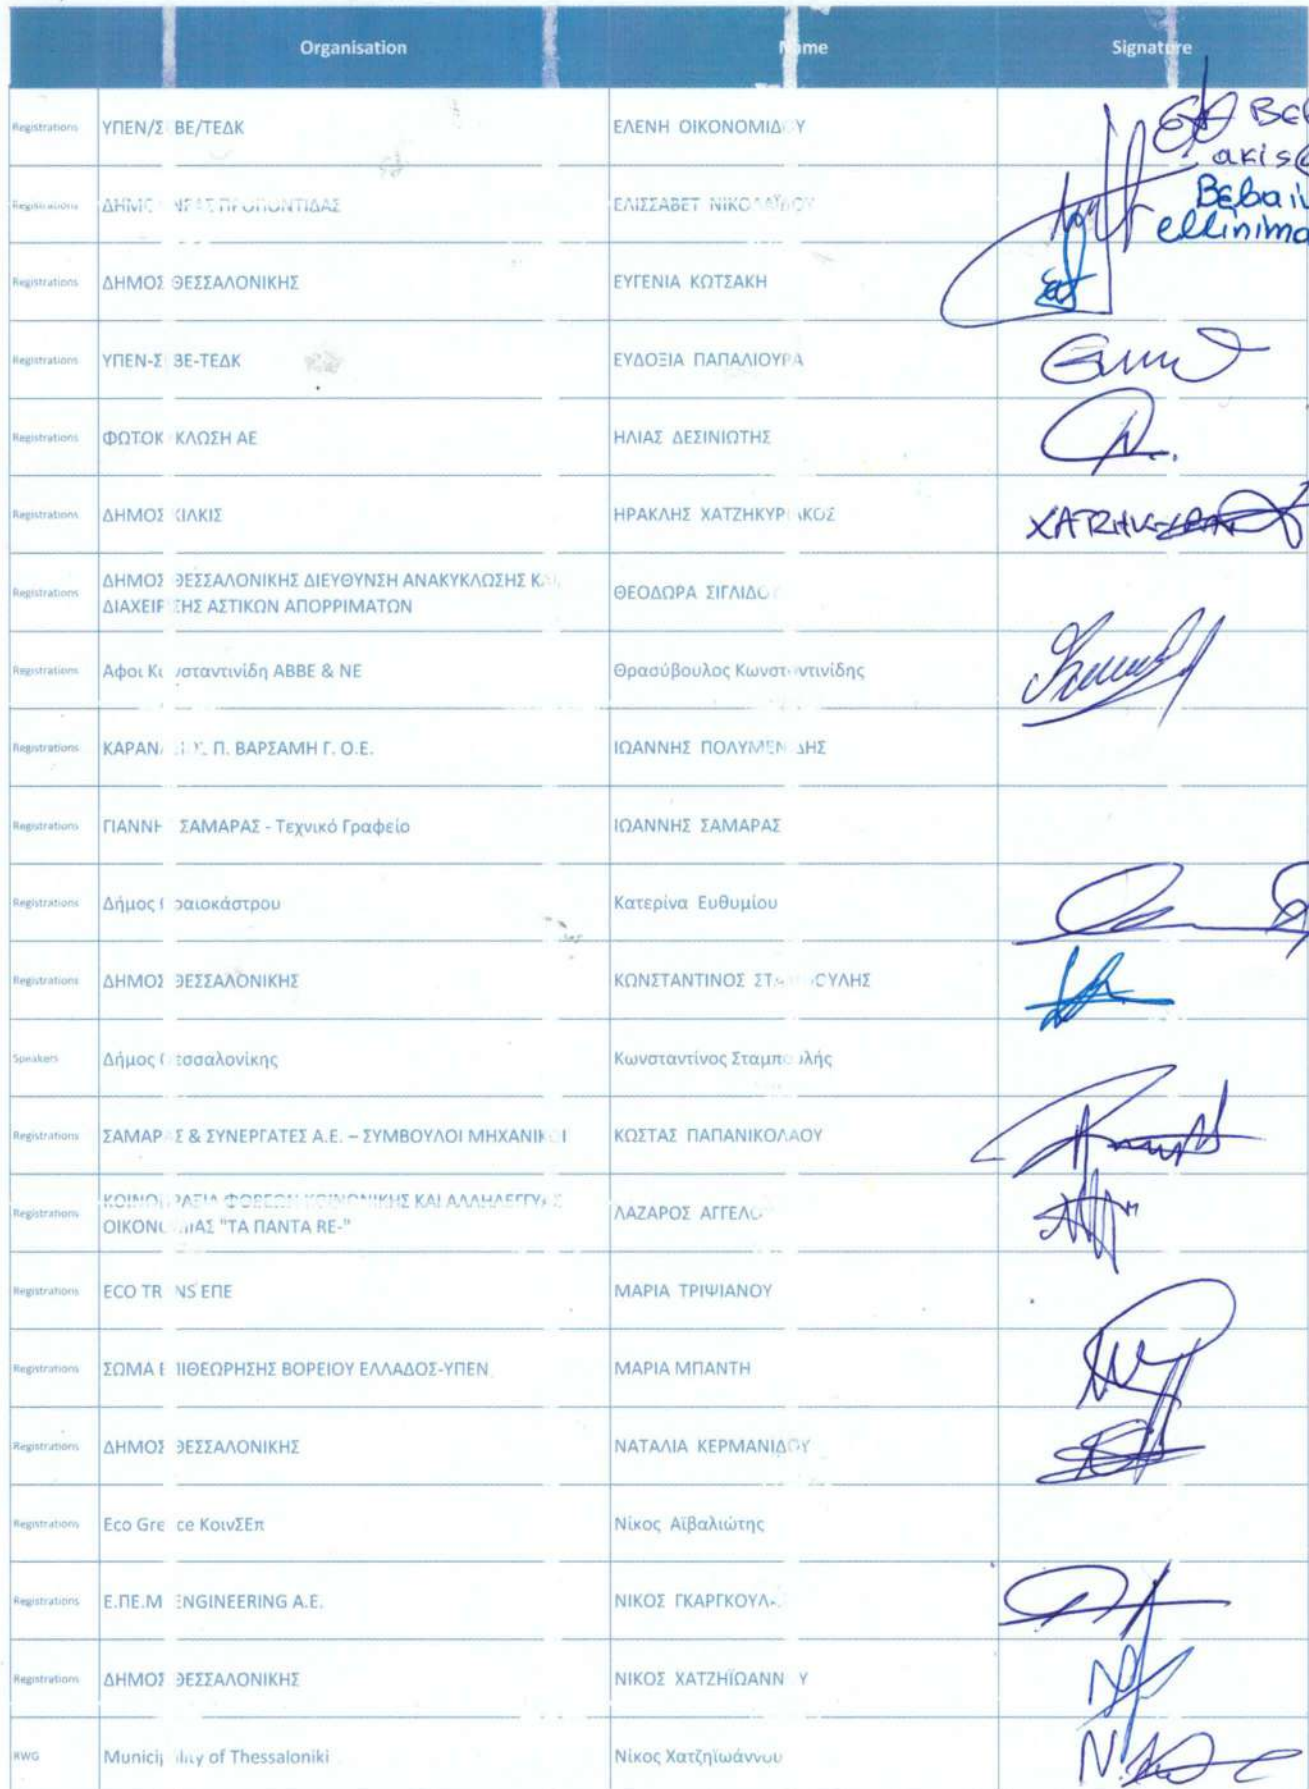 Organisation Name Signature
Registrations ΥΠΕΝ/Σ ΒΕ/ΤΕΔΚ ΕΛΕΝΗ ΟΙΚΟΝΟΜΙΔ Υ
akis@
Registrations ΔΗΜΟ ΝΕΑΣ ΠΡΟΠΟΝΤΙΔΑΣ ΕΛΙΣΣΑΒΕΤ ΝΙΚΟΛΑΪΔΟΥ
Registrations ΔΗΜΟΣ ΘΕΣΣΑΛΟΝΙΚΗΣ ΕΥΓΕΝΙΑ ΚΩΤΣΑΚΗ
Registrations ΥΠΕΝ-Σ ΒΕ-ΤΕΔΚ ΕΥΔΟΞΙΑ ΠΑΠΑΛΙΟΥΡΑ
Registrations ΦΩΤΟΚ ΚΛΩΣΗ ΑΕ ΗΛΙΑΣ ΔΕΣΙΝΙΩΤΗΣ
Registrations ΔΗΜΟΣ ΚΙΛΚΙΣ ΗΡΑΚΛΗΣ ΧΑΤΖΗΚΥΡ ΑΚΟΣ
Registrations ΔΗΜΟΣ ΘΕΣΣΑΛΟΝΙΚΗΣ ΔΙΕΥΘΥΝΣΗ ΑΝΑΚΥΚΛΩΣΗΣ ΚΑΙ
ΔΙΑΧΕΙΡ ΣΗΣ ΑΣΤΙΚΩΝ ΑΠΟΡΡΙΜΑΤΩΝ ΘΕΟΔΩΡΑ ΣΙΓΛΙΔΟ
Registrations Αφοι Κω νσταντινίδη ΑΒΒΕ & ΝΕ Θρασύβουλος Κωνστ ντινίδης
Registrations ΚΑΡΑΝ Π. ΒΑΡΣΑΜΗ Γ. Ο.Ε. ΙΩΑΝΝΗΣ ΠΟΛΥΜΕΝ ΔΗΣ
Registrations ΓΙΑΝΝΗ ΣΑΜΑΡΑΣ - Τεχνικό Γραφείο ΙΩΑΝΝΗΣ ΣΑΜΑΡΑΣ
Registrations Δήμος ραιοκάστρου Κατερίνα Ευθυμίου
Registrations ΔΗΜΟΣ ΘΕΣΣΑΛΟΝΙΚΗΣ ΚΩΝΣΤΑΝΤΙΝΟΣ ΣΤΑ ΟΥΛΗΣ
Speakers Δήμος Θ εσσαλονίκης Κωνσταντίνος Σταμπο υλής
Registrations ΣΑΜΑΡΑΣ & ΣΥΝΕΡΓΑΤΕΣ Α.Ε. – ΣΥΜΒΟΥΛΟΙ ΜΗΧΑΝΙΚΟΙ ΚΩΣΤΑΣ ΠΑΠΑΝΙΚΟΛΑΟΥ
Registrations ΚΟΙΝΟΠΡΑΞΙΑ ΦΟΡΕΩΝ ΚΟΙΝΩΝΙΚΗΣ ΚΑΙ ΑΛΛΗΛΕΓΓΥΑΣ
ΟΙΚΟΝΟΜΙΑΣ "ΤΑ ΠΑΝΤΑ RE-" ΛΑΖΑΡΟΣ ΑΓΓΕΛΟ
Registrations ECO TR NS ΕΠΕ ΜΑΡΙΑ ΤΡΙΨΙΑΝΟΥ
Registrations ΣΩΜΑ Ε ΠΙΘΕΩΡΗΣΗΣ ΒΟΡΕΙΟΥ ΕΛΛΑΔΟΣ-ΥΠΕΝ ΜΑΡΙΑ ΜΠΑΝΤΗ
Registrations ΔΗΜΟΣ ΘΕΣΣΑΛΟΝΙΚΗΣ ΝΑΤΑΛΙΑ ΚΕΡΜΑΝΙΔΟΥ
Registrations Eco Gre ce ΚοινΣΕπ Νίκος Αϊβαλιώτης
Registrations Ε.ΠΕ.Μ ENGINEERING Α.Ε. ΝΙΚΟΣ ΓΚΑΡΓΚΟΥΛΑ
Registrations ΔΗΜΟΣ ΘΕΣΣΑΛΟΝΙΚΗΣ ΝΙΚΟΣ ΧΑΤΖΗΪΩΑΝΝ Υ
RWG Municipality of Thessaloniki Νίκος Χατζηϊωάννου